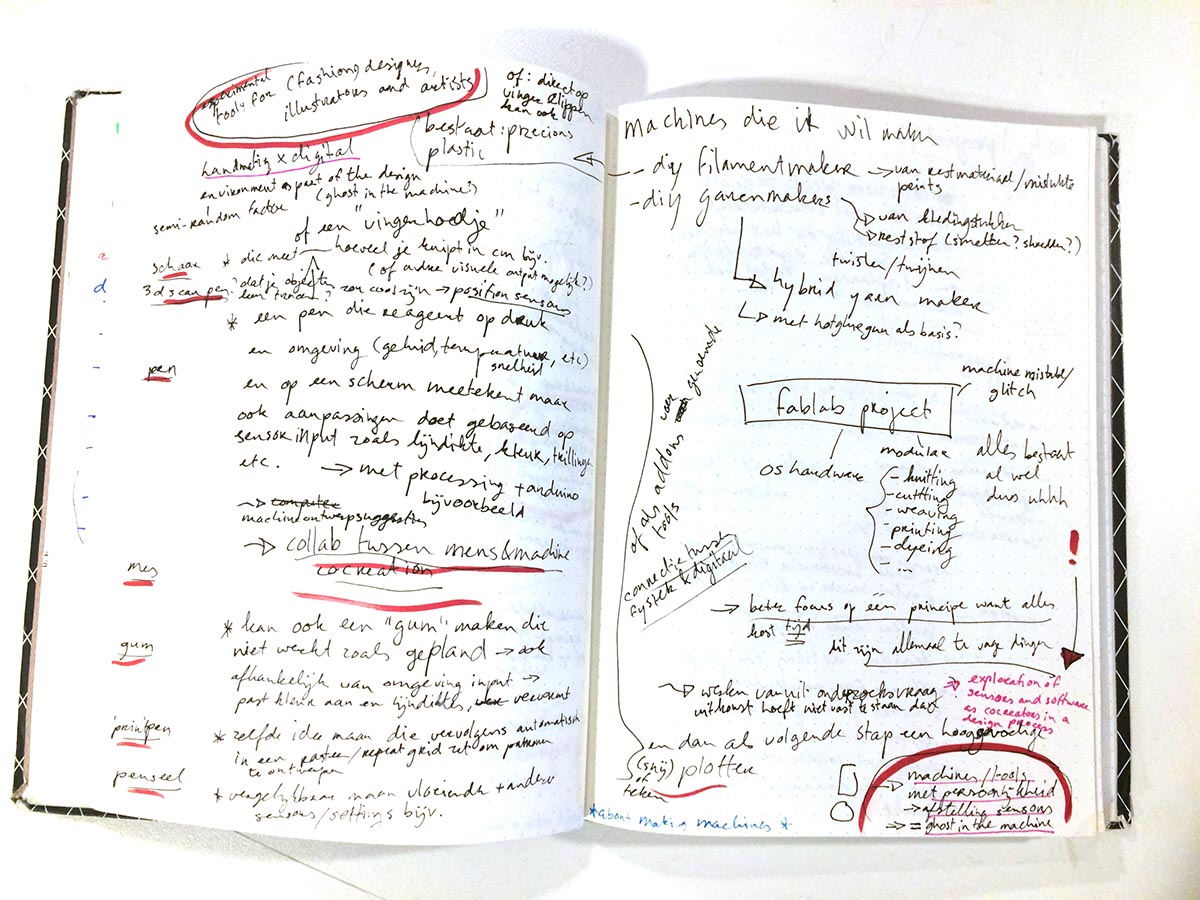 experimental
tools for (fashion) designers,
illustrators and artists
of: direct op
vinger klippen
kan ook
bestaat: precious
plastic
handmatig x digital
environment as part of the design
(ghost in the machine?)
semi-random factor
of een "vingerhoedje"
schaar * die meet hoeveel je knipt in cm bijv.
(of andere visuele output mogelijk?)
3d scan pen? dat je objecten
kan tracen? zou cool zijn → position sensors
* een pen die reageert op druk
en omgeving (geluid, temperatuur, etc)
snelheid
pen
en op een scherm meetekent maar
ook aanpassingen doet gebaseerd op
sensor input zoals lijndikte, kleur, trillingen
etc. → met processing + arduino
bijvoorbeeld
→ computer
machine ontwerpsuggesties
→ collab tussen mens & machine
cocreation
mes
* kan ook een "gum" maken die
niet werkt zoals gepland → ook
gum
afhankelijk van omgeving input →
past kleur aan en lijndiktes, vervormt
printpen
* zelfde idee maar die vervolgens automatisch
in een raster/repeat grid zet om patronen
te ontwerpen
penseel
* vergelijkbaar maar vloeiender + andere
sensors/settings bijv.
machines die ik wil maken
- diy filamentmaker → van restmateriaal/mislukte
prints
- diy garenmakers → van kledingstukken
→ reststof (smelten? shredden?)
twisten/twijnen
→ hybrid yarn maker
→ met hotglue gun als basis?
of als addons voor
tools
connectie tussen
fysiek & digitaal
fablab project
machine mistake/
glitch
os hardware
modulair
- knitting
- cutting
- weaving
- printing
- dyeing
- ...
alles bestaat
al wel
dus uhhh
!
→ beter focus op één principe want alles
kost tijd
dit zijn allemaal te vage dingen
→ werken vanuit onderzoeksvraag
uitkomst hoeft niet vast te staan dan
→ exploration of
sensors and software
as cocreators in a
design process
en dan als volgende stap een hooggevoelige
(snij) plotter
of
teken
→ machines/tools
met persoonlijkheid
→ afstelling sensors
→ = ghost in the machine
* about making machines *